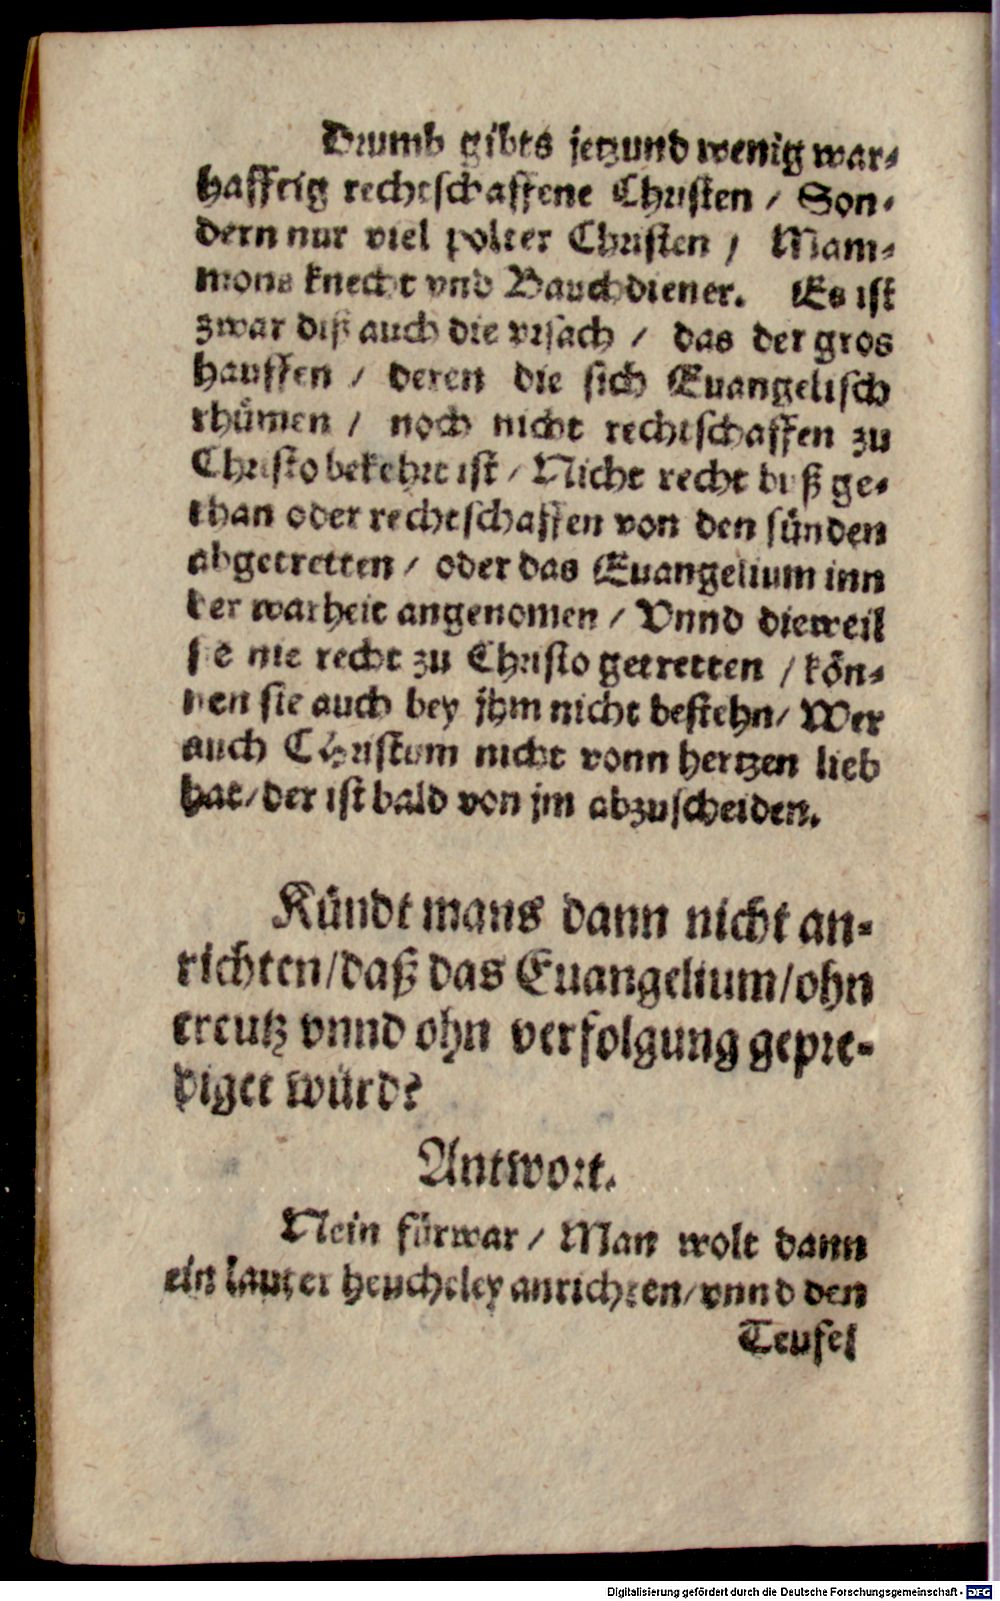 Drumb gibts jetzund wenig war-
hafftig rechtschaffene Christen / Son-
dern nur viel polter Christen / Mam-
mons knecht vnd Bauchdiener. Es ist
zwar diß auch die vrsach / das der gros
hauffen / deren die sich Euangelisch
rhümen / noch nicht rechtschaffen zu
Christo bekehrt ist / Nicht recht buß ge-
than oder rechtschaffen von den sünden
abgetretten / oder das Euangelium inn
der warheit angenomen / Vnnd dieweil
sie nie recht zu Christo getretten / kön-
nen sie auch bey jhm nicht bestehn / Wer
auch Christum nicht vonn hertzen lieb
hat / der ist bald von jm abzuscheiden.
Kündt mans dann nicht an-
richten / daß das Euangelium / ohn
creutz vnnd ohn verfolgung gepre-
diget würd?
Antwort.
Nein fürwar / Man wolt dann
ein lauter heucheley anrichten / vnnd den
Teufel
Digitalisierung gefördert durch die Deutsche Forschungsgemeinschaft - DFG